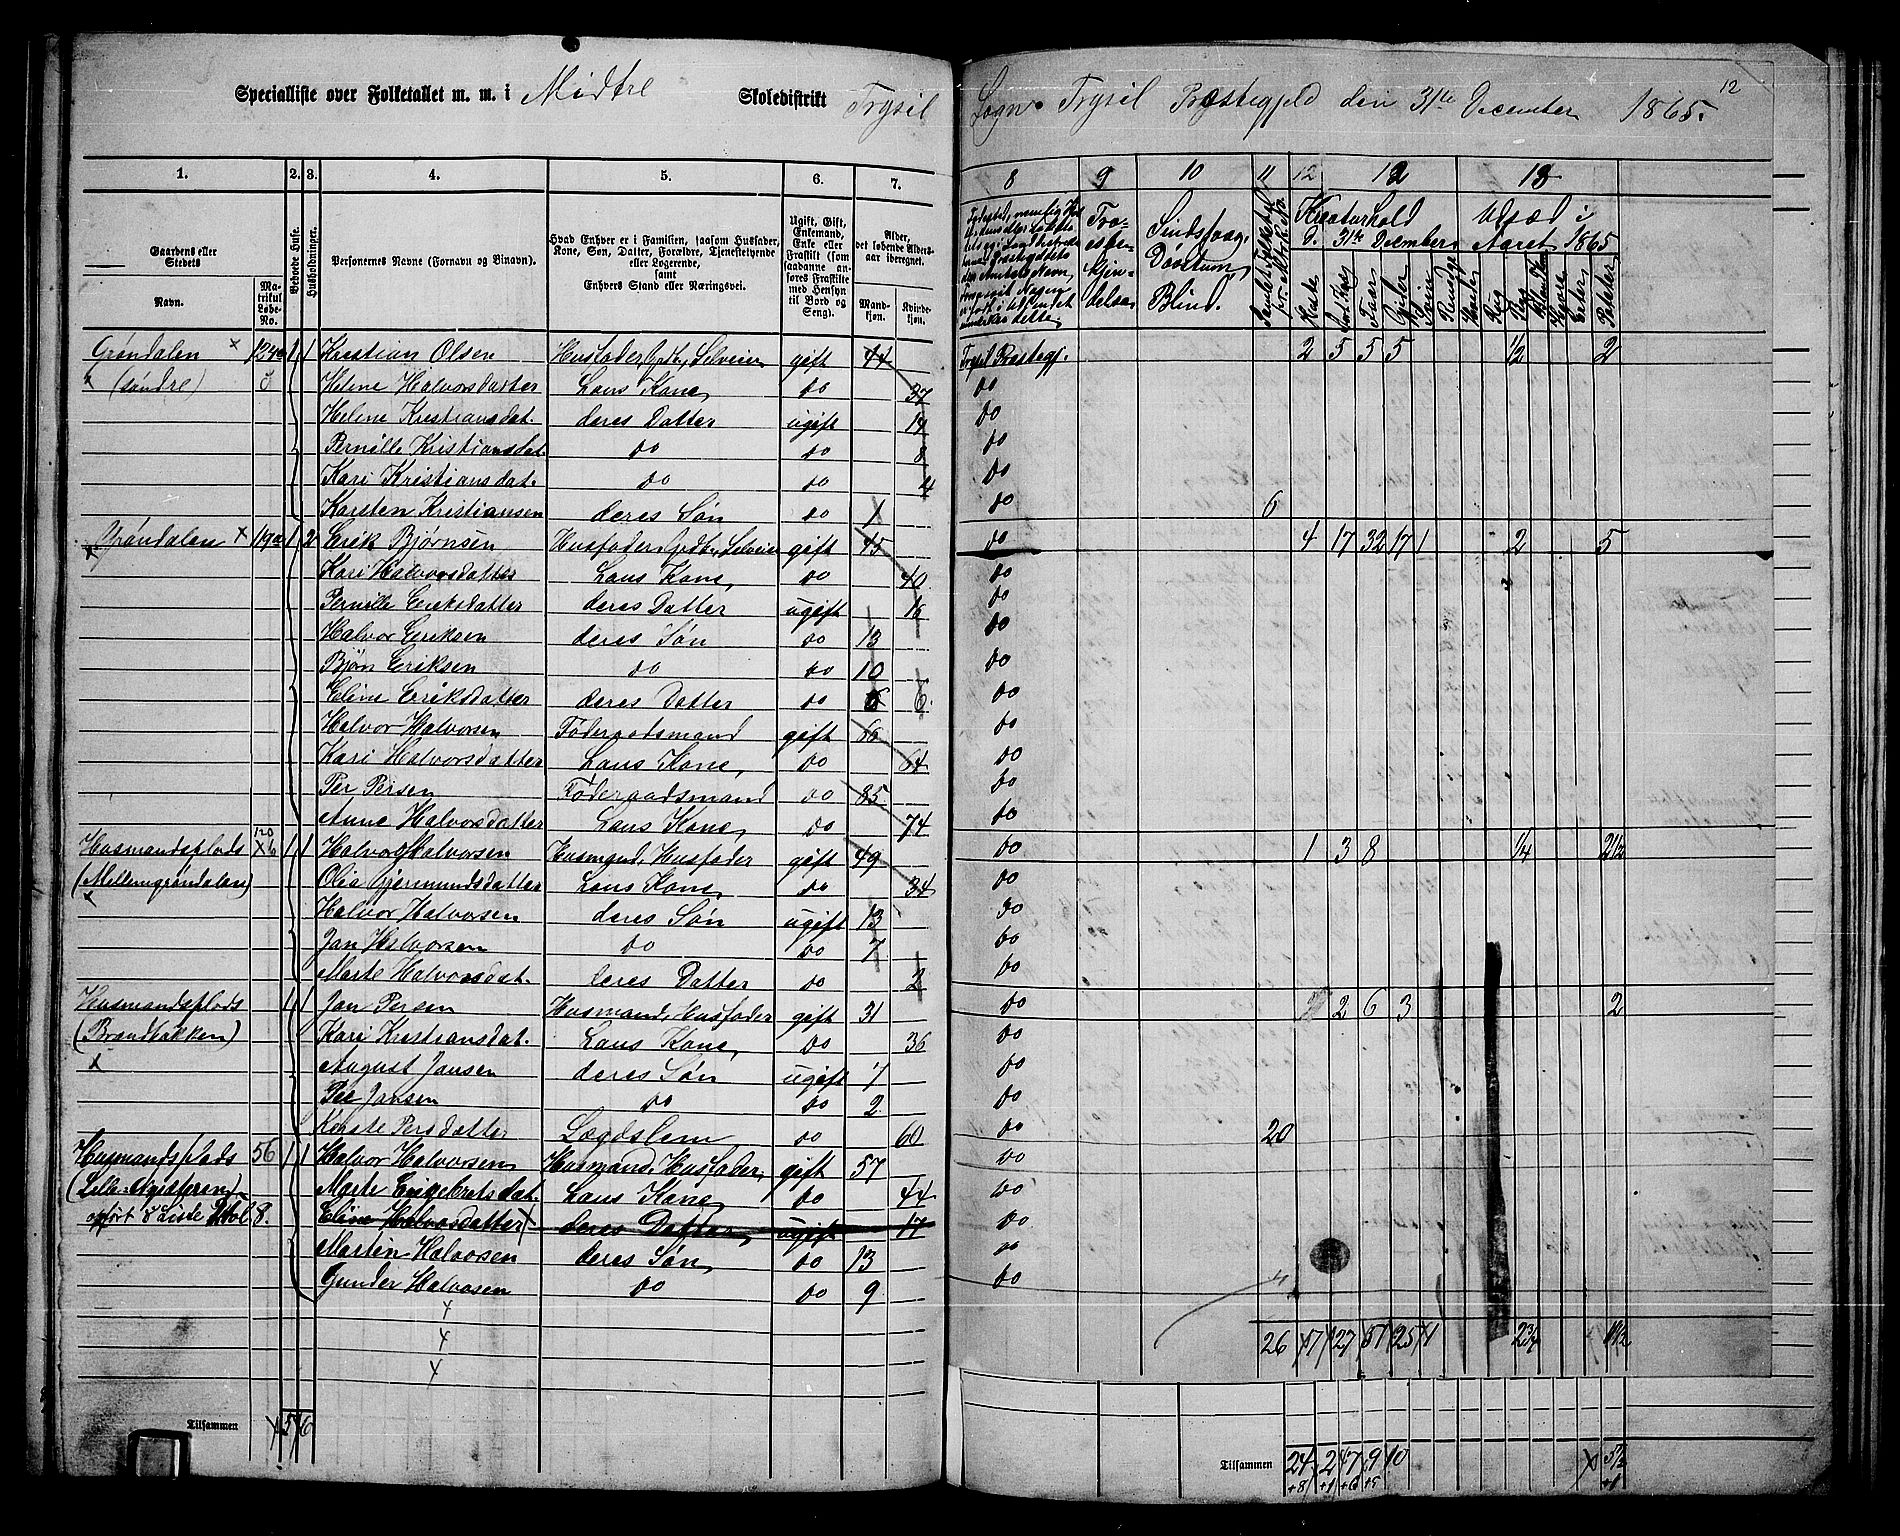 Specialliste over Folketallet m. m. i Midtre Skoledistrikt Trysil Sogn Trysil Præstegjeld den 31te December 1865. 12
1. 2. 3. 4. 5. 6. 7. 8 9 10 11 12 12 13
Gaardens eller Stedets
Navn.
Matrikul Løbe-No.
Beboede Huse.
Husholdninger.
Personernes Navne (Fornavn og Binavn).
Hvad Enhver er i Familien, saasom Husfader, Kone, Søn, Datter, Forældre, Tjenestetyende eller Logerende,
samt
Enhvers Stand eller Næringsvei.
Ugift, Gift, Enkemand, Enke eller Fraskilt (som saadanne anføres Fraskilte med Hensyn til Bord og Seng).
Alder, det løbende Aldersaar iberegnet.
Mandkjøn. Kvindekjøn.
Troesbekjendelse
Sindssvag, Døvstum, Blind.
Kreaturhold d. 31te December
Udsæd i Aaret 1865
Grøndalen x 124 1 1 Kristian Olsen Husfader, Grdb., Selveier gift 44 Trysil Præstegj. 2 5 5 5 1/2 2
x (søndre) Helene Halvorsdatter Hans Kone, do 37 do
Helene Kristiansdat. deres Datter ugift 14 do
Pernille Kristiansdat. do do 8 do
Kari Kristiansdat. do do 4 do
Karsten Kristiansen deres Søn do 1 do 6
Grøndalen x 119a 1 2 Erik Bjørnsen Husfader, Grdb., Selveier gift 45 do 4 17 32 17 1 2 5
Kari Halvorsdatter Hans Kone, do 40 do
Pernille Eriksdatter deres Datter ugift 16 do
Halvor Eriksen deres Søn do 13 do
Bjøn Eriksen do do 10 do
Eline Eriksdatter deres Datter do 6 do
Halvor Halvorsen Føderaadsmand gift 66 do
Kari Halvorsdatter Hans Kone, do 64 do
Per Persen Føderaadsmand do 85 do
Anne Halvorsdatter Hans Kone, do 74 do
Husmandsplads 120 1 1 Halvor Halvorsen Husmand, Husfader gift 49 do 1 3 8 1/4 2 1/2
(Mellemgrøndalen) Olia Gjermundsdatter Hans Kone, do 34 do
x Halvor Halvorsen deres Søn ugift 13 do
Jan Halvorsen do do 7 do
Marte Halvorsdat. deres Datter do 2 do
Husmandsplads 1 1 Jan Persen Husmand, Husfader gift 31 do 2 6 3 2
(Brændbakken) Kari Kristiansdat. Hans Kone, do 36 do
x August Jansen deres Søn ugift 7 do
Per Jansen do do 2 do
Kerste Persdatter Lægdslem do 60 do 20
Husmandsplads 56 1 1 Halvor Halvorsen Husmand, Husfader, gift 57 do
Marte Engebretsdat. Hans Kone, do 44 do
opført i Liste 8. Eline Halvorsdatter x deres Datter, ugift 17 do
Martin Halvorsen deres Søn, do 13 do
Gunder Halvorsen do do 9 do
26 7 27 51 25 1 2 3/4
Tilsammen 5 6
Tilsammen 24 2 47 9 10 5 1/2